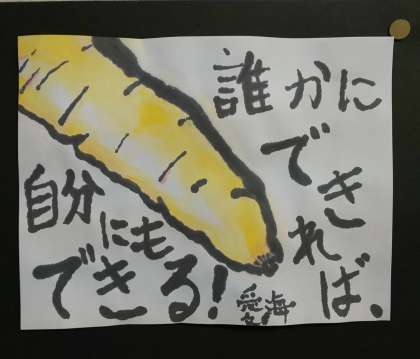 誰かに
できれば、
自分
にも
できる!
愛海